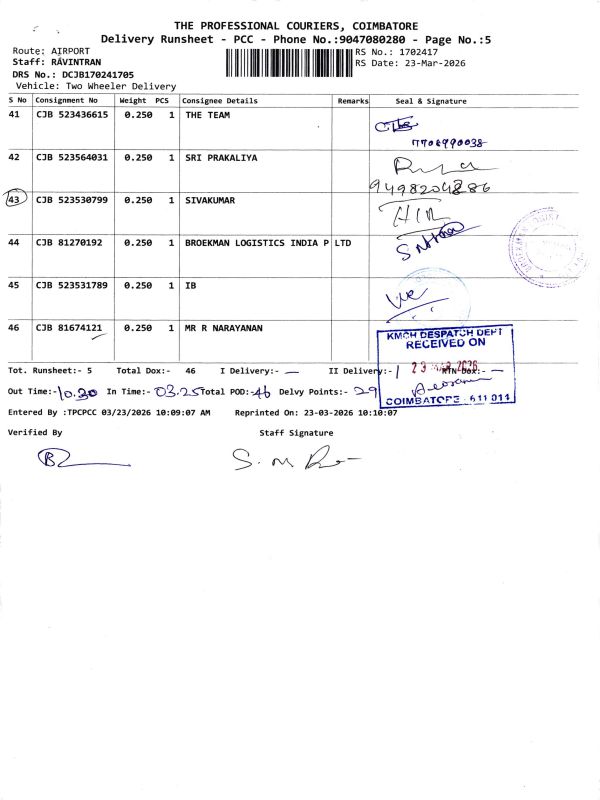 THE PROFESSIONAL COURIERS, COIMBATORE
Delivery Runsheet - PCC - Phone No.:9047080280 - Page No.:5
Route: AIRPORT
RS No.: 1702417
Staff: RAVINTRAN
RS Date: 23-Mar-2026
DRS No.: DCJB170241705
Vehicle: Two Wheeler Delivery
S No Consignment No Weight PCS Consignee Details Remarks Seal & Signature
41 CJB 523436615 0.250 1 THE TEAM
7708990038
42 CJB 523564031 0.250 1 SRI PRAKALIYA
9498204886
43 CJB 523530799 0.250 1 SIVAKUMAR
44 CJB 81270192 0.250 1 BROEKMAN LOGISTICS INDIA P LTD
45 CJB 523531789 0.250 1 IB
46 CJB 81674121 0.250 1 MR R NARAYANAN
KMCH DESPATCH DEPT
RECEIVED ON
23 MAR 2026
COIMBATORE - 641 014
Tot. Runsheet:- 5 Total Dox:- 46 I Delivery:- — II Delivery:- 1
Out Time:- 10.30 In Time:- 03.25 Total POD:- 46 Delvy Points:- 29
Entered By :TPCPCC 03/23/2026 10:09:07 AM Reprinted On: 23-03-2026 10:10:07
Verified By Staff Signature